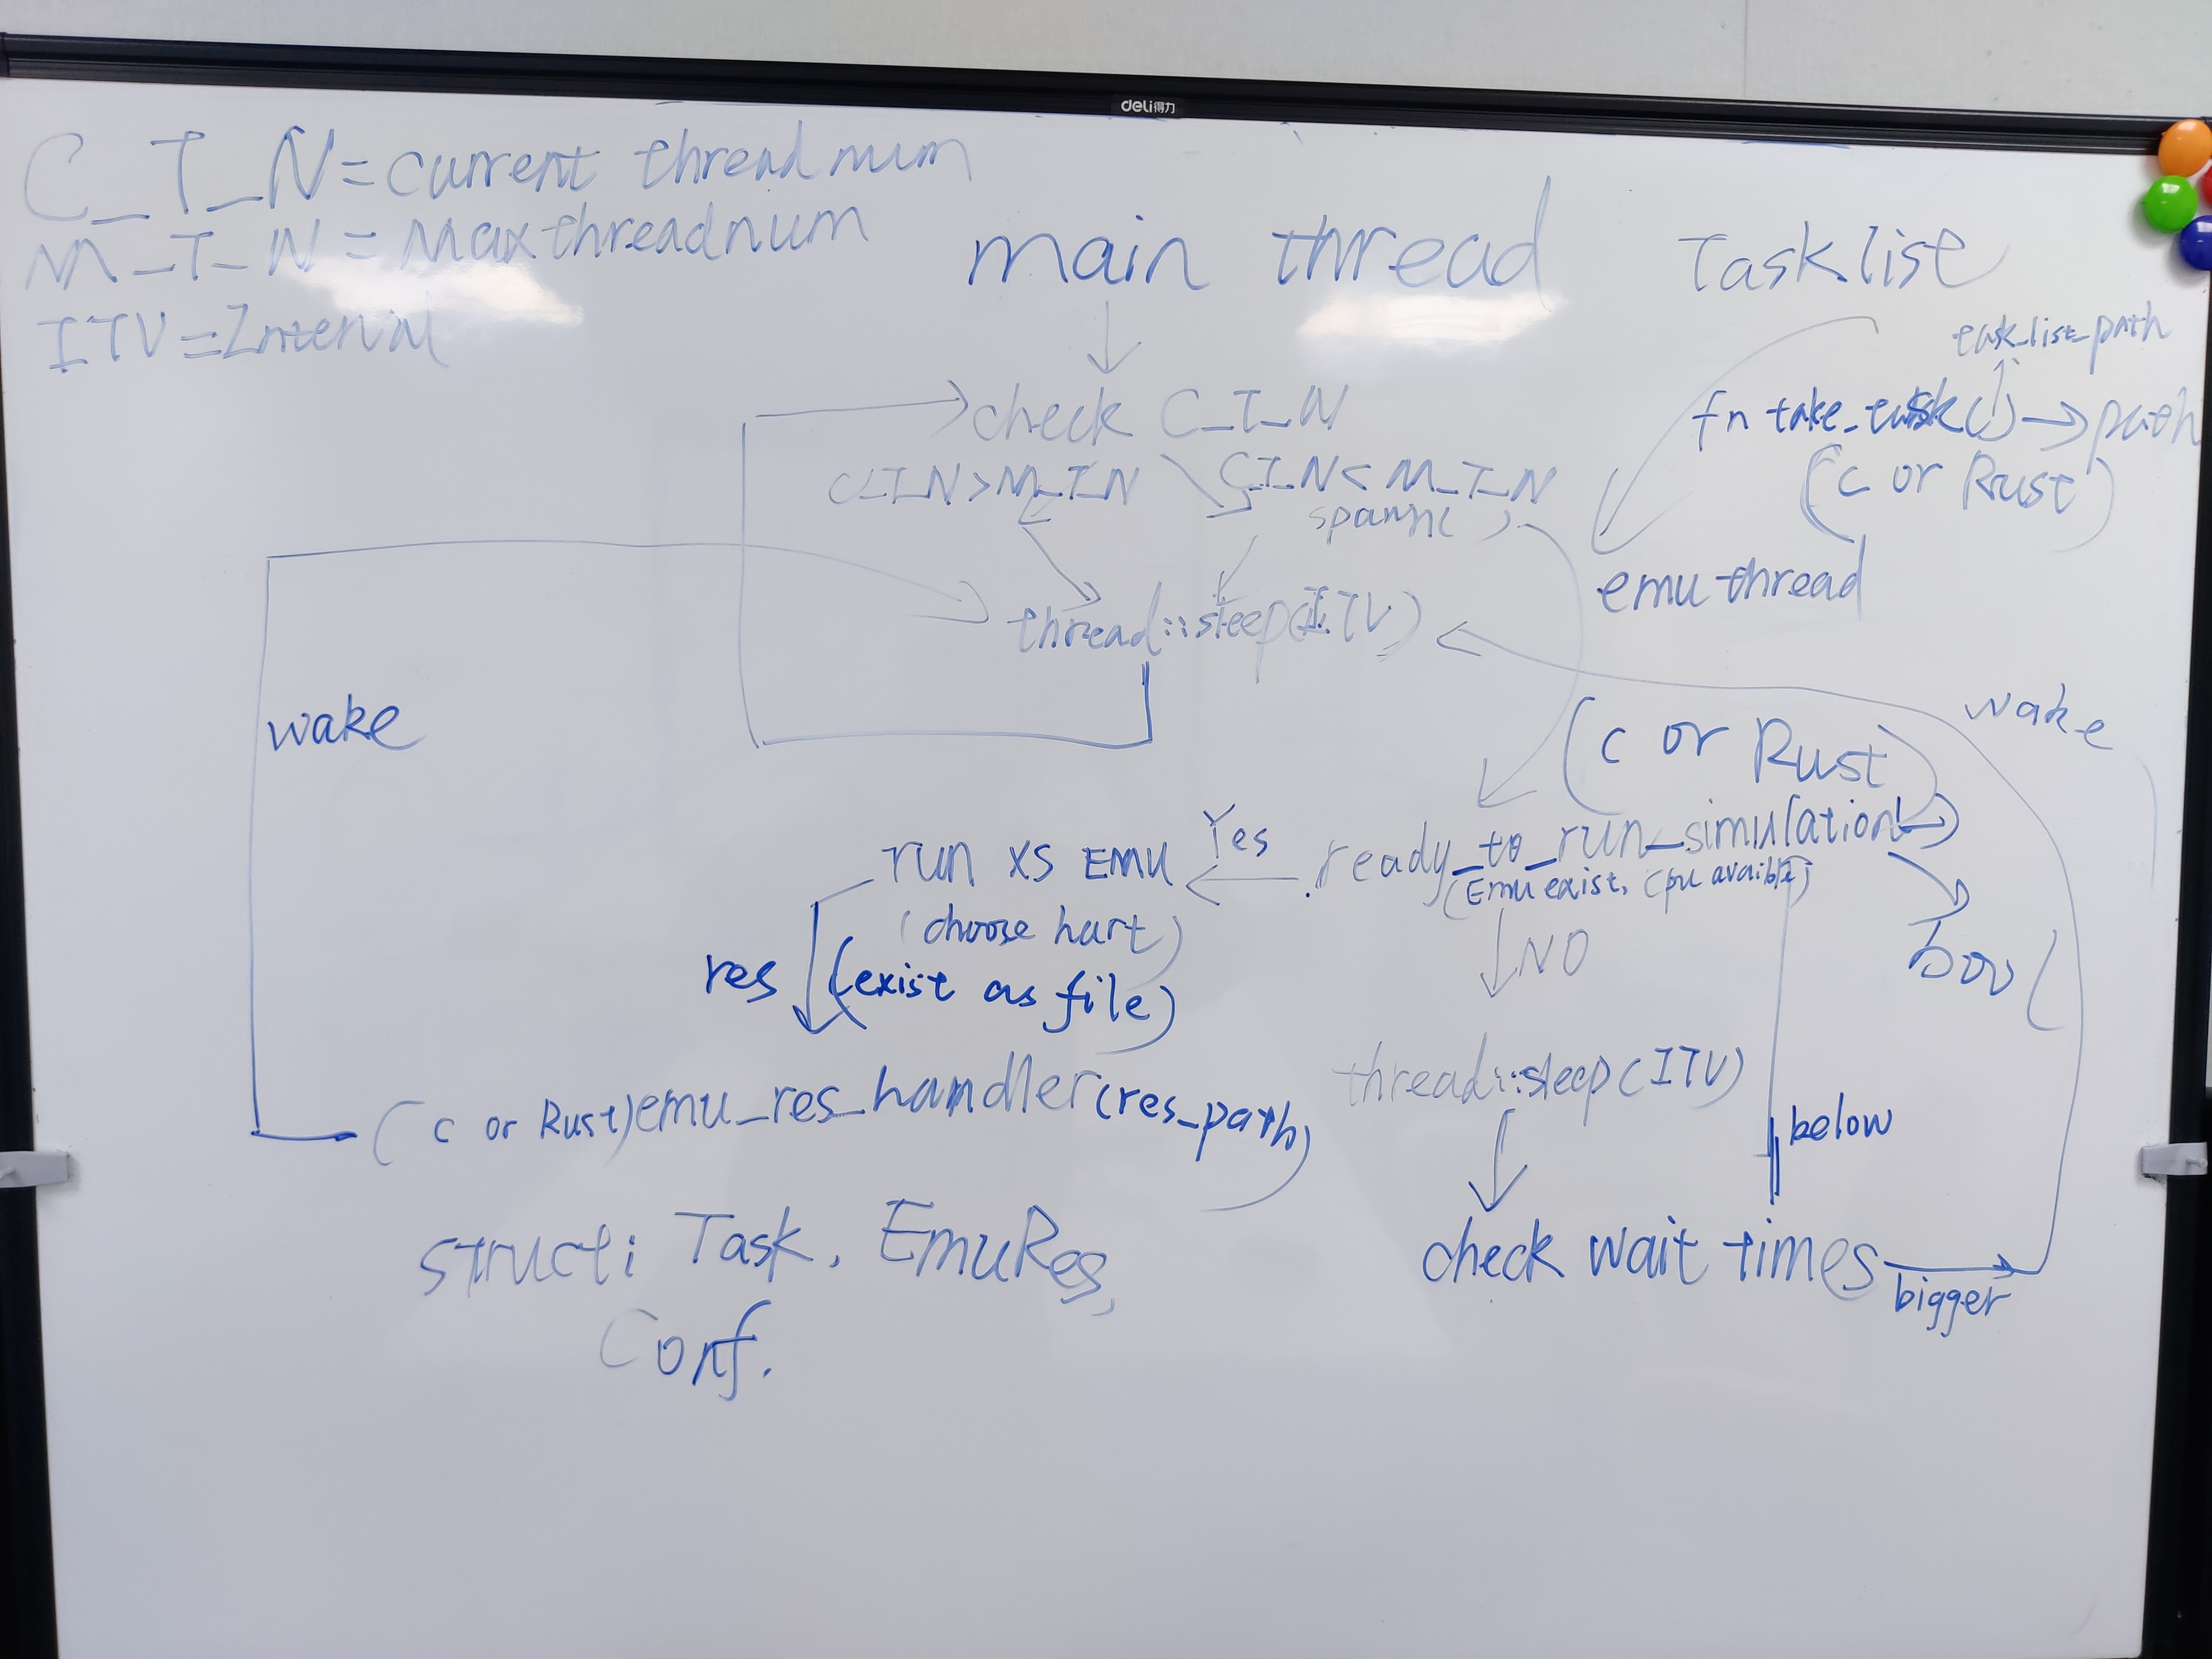 deli得力
C_T_N=current thread num
M_T_N=Max threadnum
ITV=Interval
main thread
Task list
task_list_path
fn take_task( )→path
(C or Rust)
emu thread
check C_T_N
C_T_N>M_T_N
C_T_N<M_T_N
spawn( )
thread::sleep(ITV)
wake
wake
(C or Rust)
ready_to_run_simulation( )
(Emu exist, Cpu avaible)
bool
Yes
run XS EMU
(choose hart)
res
(exist as file)
NO
thread::sleep(ITV)
below
(C or Rust)emu_res_handler(res_path)
check wait times
bigger
struct: Task, EmuRes,
Conf.